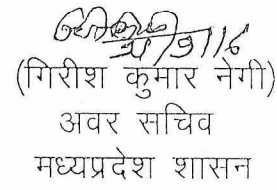 (गिरीश कुमार नेगी)
अवर सचिव
मध्यप्रदेश शासन